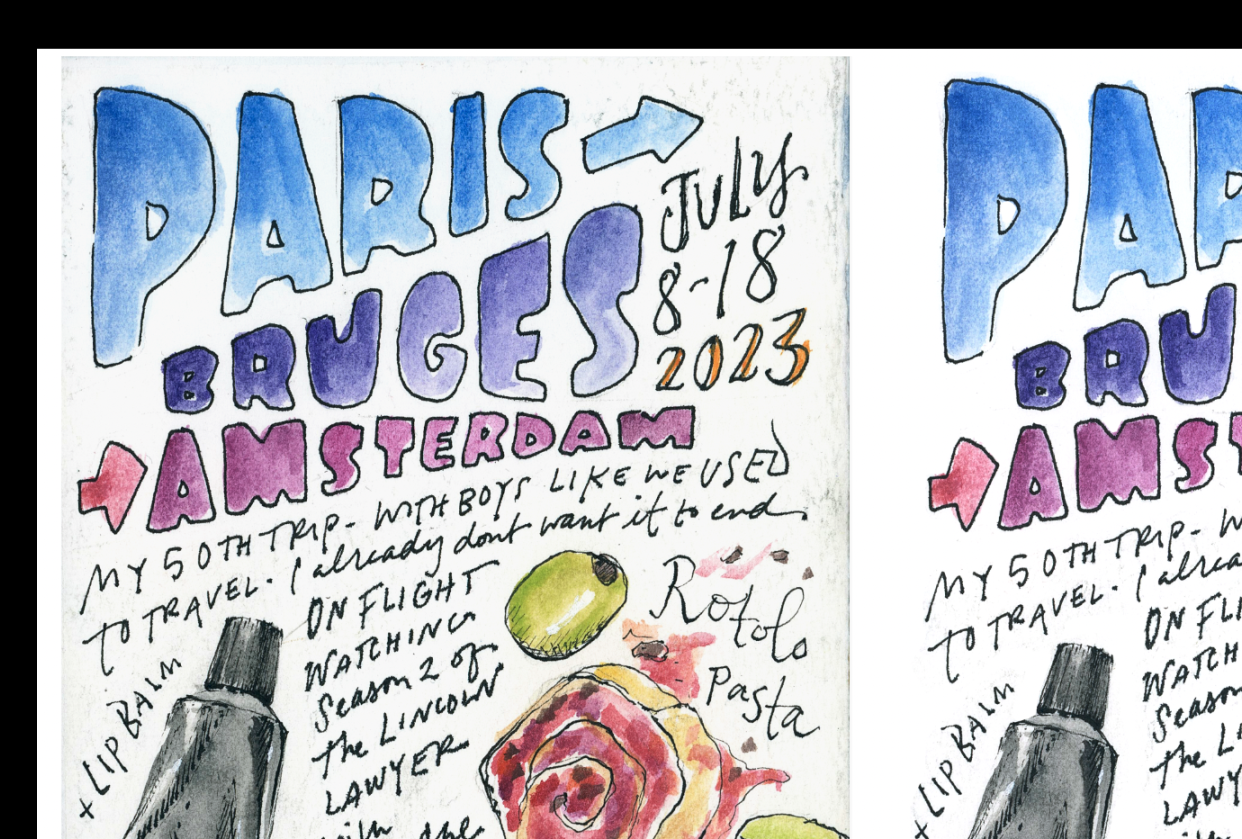 PARIS
JULY
8-18
2023
BRUGES
AMSTERDAM
MY 50TH TRIP - WITH BOYS LIKE WE USED
TO TRAVEL. I already dont want it to end.
ON FLIGHT
WATCHING
Season 2 of
the LINCOLN
LAWYER
with the
+ LIP BALM
Rotolo
Pasta
PAR
BRU
AMST
MY 50TH TRIP - W
TO TRAVEL. I alrea
ON FLI
WATCH
Season
the LI
LAWY
+ LIP BALM